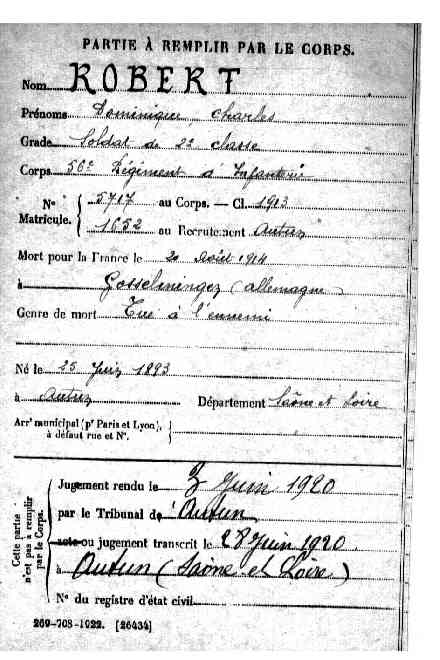 PARTIE À REMPLIR PAR LE CORPS.
Nom ROBERT
Prénoms Dominique Charles
Grade Soldat de 2e classe
Corps 56e Régiment d'Infanterie
N° 5717 au Corps. — Cl. 1913
Matricule. 1652 au Recrutement Autun
Mort pour la France le 20 Août 1914
à Gosselmingez (allemagne)
Genre de mort Tué à l'ennemi
Né le 25 Juin 1893
à Autun Département Saône et Loire
Arrt municipal (pr Paris et Lyon),
à défaut rue et N°.
Cette partie
n'est pas à remplir
par le Corps.
Jugement rendu le 3 Juin 1920
par le Tribunal de Autun
acte ou jugement transcrit le 28 Juin 1920
à Autun (Saône et Loire)
N° du registre d'état civil
269-708-1922. [26434]